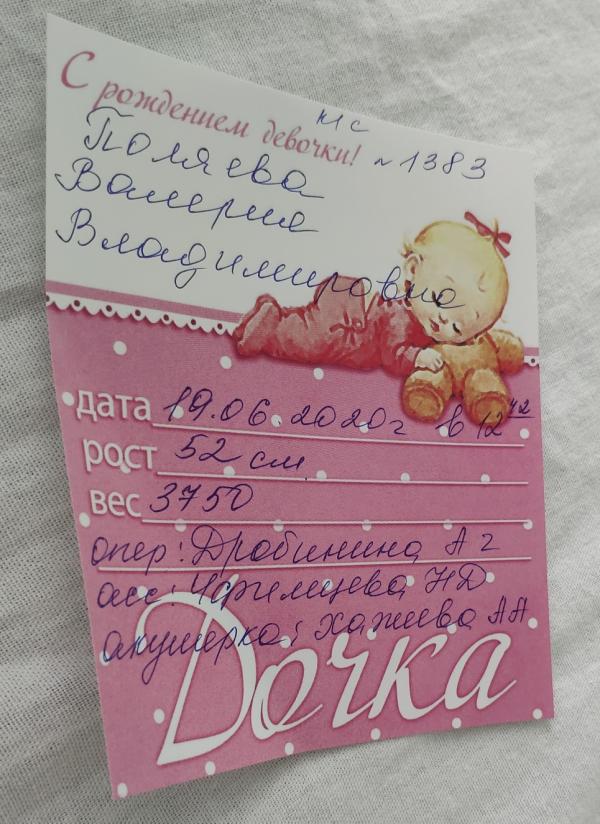 С рождением девочки!
мс
№1383
Поляева
Валерия
Владимировна
дата 19.06.2020г в 12 42
рост 52 см
вес 3750
опер: Дробинина А Г
асс: Н Д
акушерка: Хажиева АА
Дочка